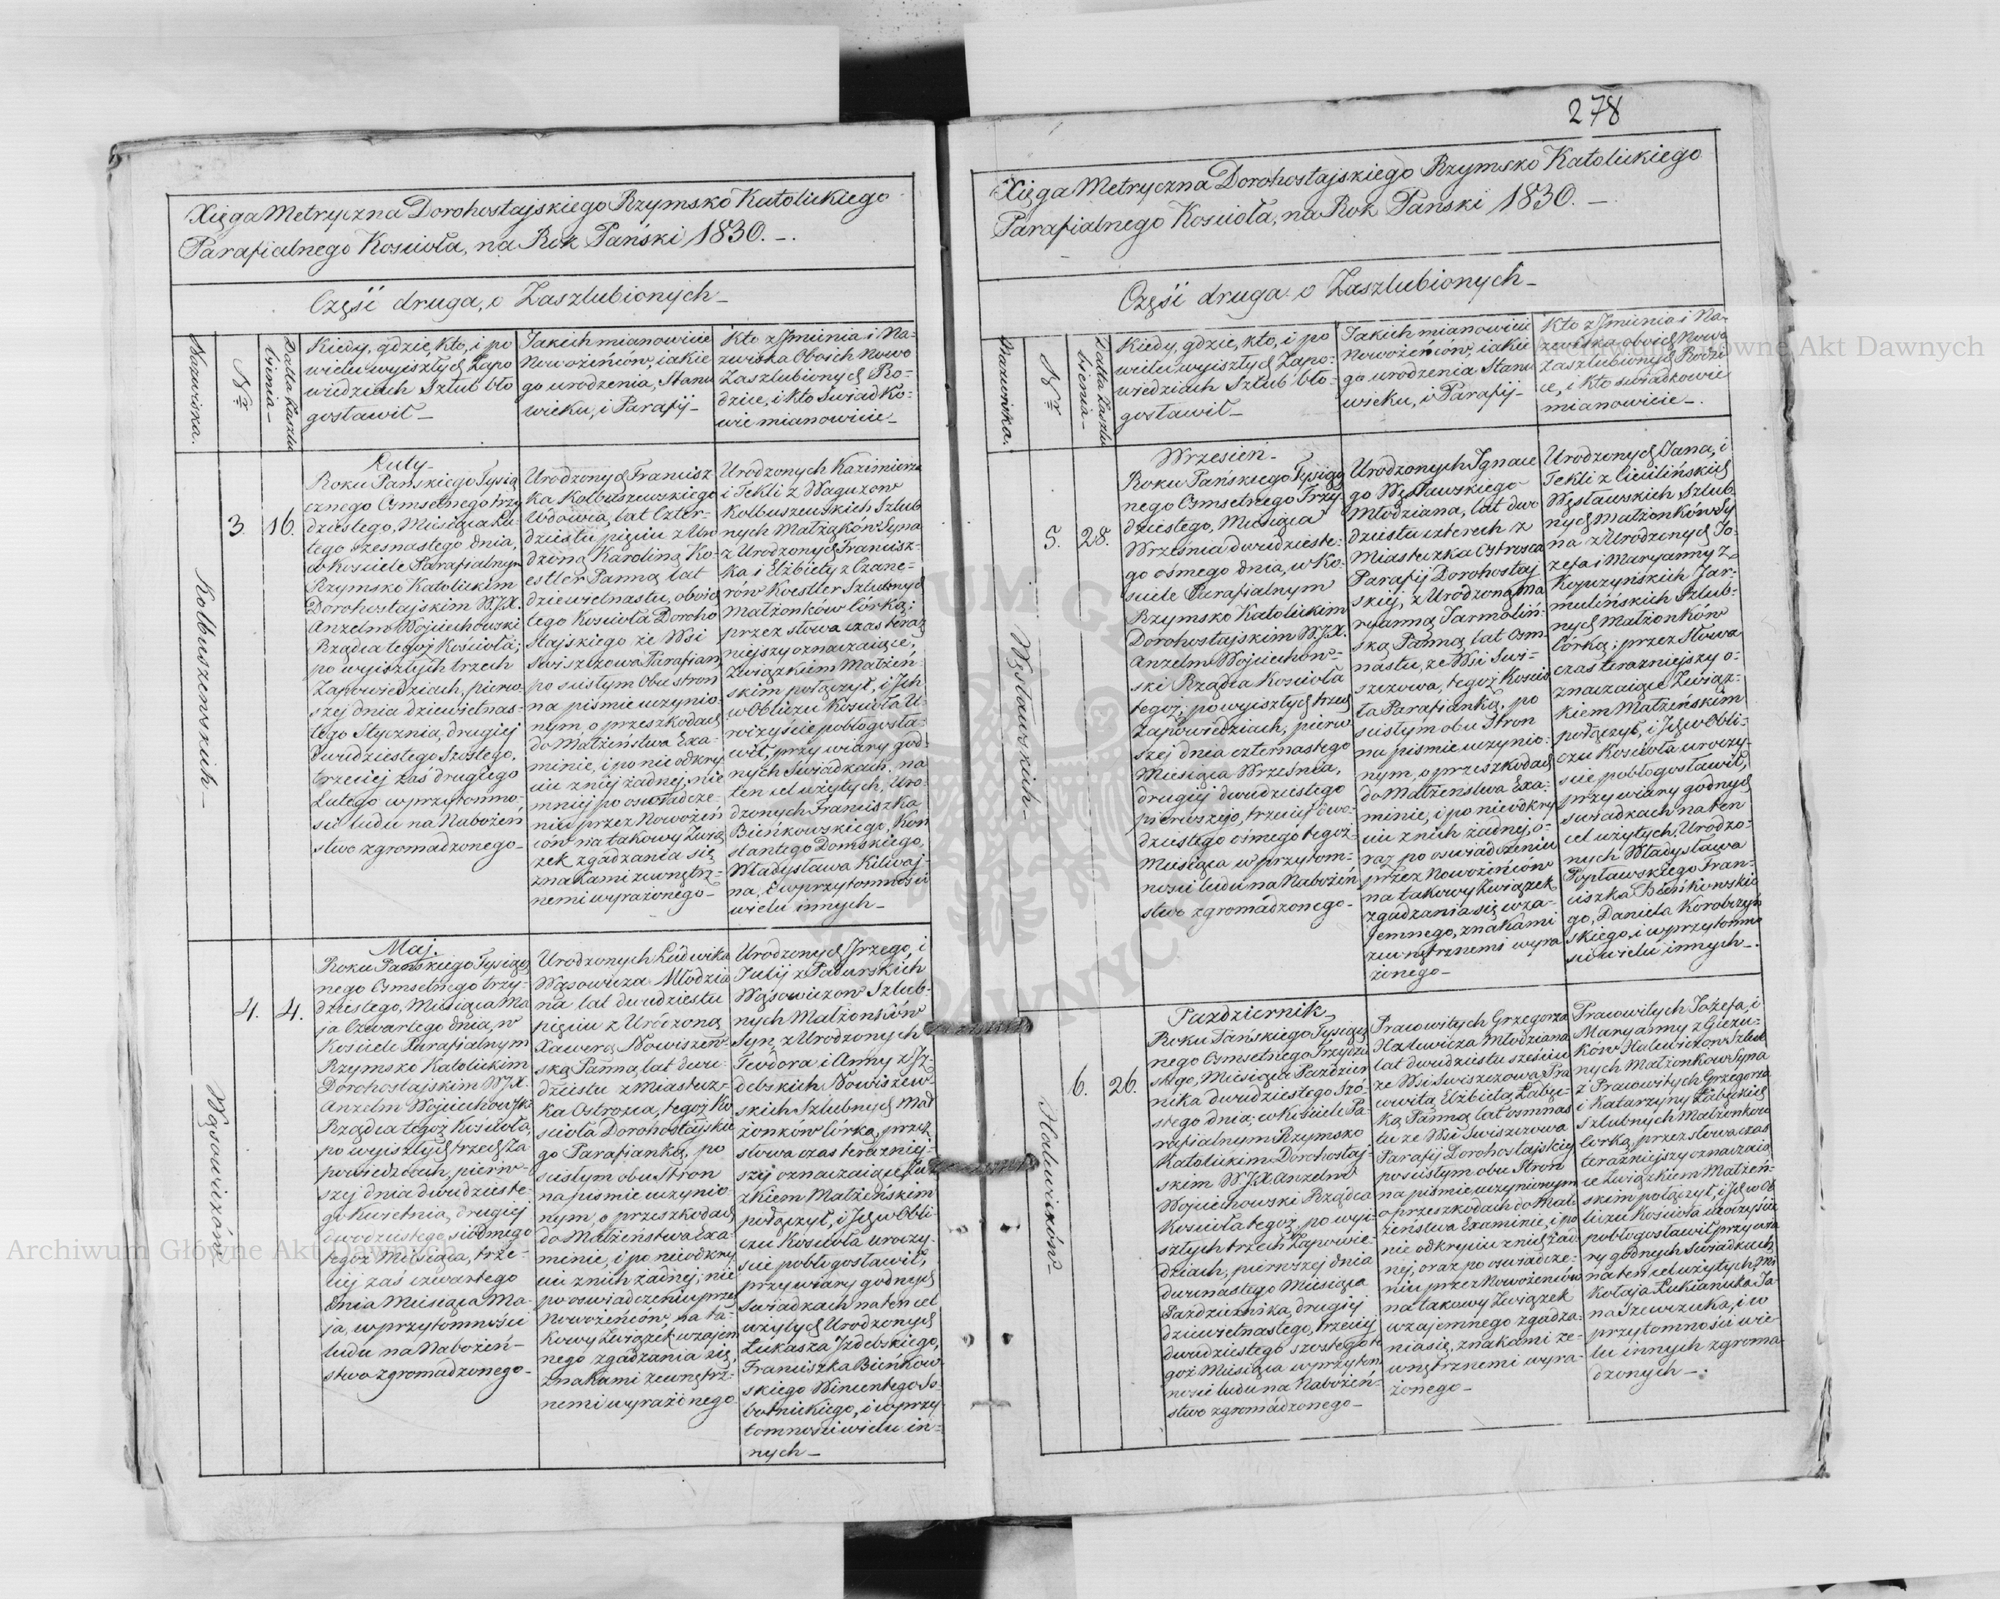 278
Xięga Metryczna Dorohostajskiego Rzymsko Katolickiego
Parafialnego Kościoła, na Rok Pański 1830. –.
Część druga, o Zaszlubionych –
Nazwiska.
Nr
Datta Zaszlu
bienia –
Kiedy, gdzie, kto, i po
wielu wyiszłych Zapo
wiedziach Szlub bło
gosławił –
Jakich mianowicie
Nowożeńców, iakie
go urodzenia, Stanu
wieku, i Parafij –
Kto z Jmienia i Na-
zwiska Oboich Nowo
Zaszlubionych Ro-
dzice, i kto Swiadko-
wie mianowicie –
Kolbuszewskich –
3.
16.
Luty –
Roku Pańskiego Tysią
cznego Osmsetnego trzy
dziestego, Miesiąca Lu
tego szesnastego dnia,
w Kosciele Parafialnym
Rzymsko Katolickim
Dorohostajskim WJX.
Anzelm Wojciechowski
Rządca tegoż Kościoła;
po wyiszłych trzech
Zapowiedziach, pierw
szej dnia dziewietnas-
tego Stycznia, drugiej
dwudziestego Szóstego,
trzeciej zaś drugiego
Lutego w przytomno
sci ludu na Nabożeń
stwo zgromadzonego –
Urodzonych Francisz
ka Kolbuszewskiego
Wdowia, lat Czter-
dziestu pięciu z Uro
dzoną Karoliną Ko-
estler Panną lat
dziewietnastu, oboie
tego Kosciola Doroho
stajskiego ze Wsi
Swiszczowa Parafian,
po scisłym obu stron
na pismie uczynio-
nym, o przeszkodach
do Małżeństwa Exa-
minie, i po nie odkry
ciu z niej żadnej, nie
mniej po oswiadcze-
niu przez Nowożeń
ców na takowy Zwią
zek zgadzania się
znakami zewnętrz-
nemi wyrażonego –
Urodzonych Kazimierza
i Tekli z Waguzow
Kolbuszewskich Szlub
nych Małżąków Syna
z Urodzonych Francisz-
ka i Elżbiety z Czane-
rów Koestler Szlubnych
Małżonków Córką;
przez słowa czas teraz
niejszy oznaczaiące,
Związkiem Małżeń-
skim połączył, i Jch
w Obliczu Kościoła U-
roczyście pobłogosła-
wił, przy wiary god-
nych Swiadkach, na
ten cel użytych, Uro-
dzonych Franciszka
Bieńkowskiego, Kon
stantego Domskiego,
Władysława Kiliwaj-
na, i w przytomności
wielu innych –
Wąsowiczów –
4.
4.
Maj.
Roku Pańskiego Tysiącz
nego Osmsetnego trzy-
dziestego, Miesiąca Ma
ja Czwartego dnia, w
Kosciele Parafialnym
Rzymsko Katolickim
Dorohostajskim WJX.
Anzelm Wojciechowski
Rządca tegoż Kościoła,
po wyiszłych trzech Za
powiedziach, pierw-
szej dnia dwudzieste-
go Kwietnia, drugiej
dwodziestego siódmego
tegoż Miesiąca, trze-
ciej zaś czwartego
dnia Miesiąca Ma-
ja, w przytomności
ludu na Nabożeń-
stwo zgromadzonego –
Urodzonych Ludwika
Wąsowicza Młodzia
na lat dwudziestu
pięciu z Urodzoną
Xawerą Nowiszew
ską Panną, lat dwu-
dziestu z Miastecz-
ka Ostrozca, tegoż Ko
scioła Dorohostajskie
go Parafianką, po
scisłym obu Stron
na pismie uczynio-
nym, o przeszkodach
do Małżeństwa Exa-
minie, i po nieodkry
ciu z nich żadnej, nie
po oswiadczeniu prze
Nowożeńców, na ta-
kowy Związek wzajem
nego zgadzania się,
znakami zewnętrz-
nemi wyrażonego
Urodzonych Jrzego, i
Julij z Padurskich
Wąsowiczow Szlub-
nych Małżonków
Syn, z Urodzonych
Teodora i Anny z Jz
debskich Nowiszew-
skich Szlubnych Mał
żonków Córką, przez
słowa czas teraźniej-
szy oznaczaiące Zwią
zkiem Małżeńskim
połączył, i Jch w Obli
czu Kościoła uroczy-
scie pobłogosławił,
przy wiary godnych
Swiadkach na ten cel
użytych Urodzonych
Łukasza Jzdebskiego,
Franciszka Bieńkow-
skiego Wincentego So-
botnickiego, i w przy-
tomności wielu in-
nych –
Xięga Metryczna Dorohostajskiego Rzymsko Katolickiego
Parafialnego Kościoła, na Rok Pański 1830. –
Część druga o Zaszlubionych –
Nazwiska.
Nr
Datta Zaszlu
bienia –
Kiedy, gdzie, kto, i po
wielu wyiszłych Zapo-
wiedziach Szlub bło-
gosławił –
Jakich mianowicie
Nowożeńców, iakie
go urodzenia Stanu
wieku, i Parafij –
Kto z Jmienia i Na-
zwiska oboich Nowo
Zaszlubionych Rodzi
ce, i kto swiadkowie
mianowicie –.
Węsławskich –
5.
28.
Wrzesień –
Roku Pańskiego Tysiącz
nego Osmsetnego Trzy
dziestego, Miesiąca
Września dwudzieste-
go osmego dnia, w Ko-
sciele Parafialnym
Rzymsko Katolickim
Dorohostajskim WJX.
Anzelm Wojciechow-
ski Rządca Kosciola
tegoż; po wyiszłych trzech
Zapowiedziach, pierw
szej dnia czternastego
Miesiąca Września,
drugiej dwudziestego
pierwszejo, trzeciej dwu-
dziestego osmego tegoż-
Miesiąca w przytom-
nosci ludu na Nabożeń
stwo zgromádzonego –
Urodzonych Jgnace
go Węsławskiego
Młodziana, lat dwu
dziestu czterech z
Miasteczka Ostrozca
Parafij Dorohostaj
skiej, z Urodzoną Ma
ryanną Jarmoliń-
ską Panną, lat Osm-
nastu, ze Wsi Swi-
szczowa, tegoż Koscio
ła Parafianką, po
scisłym obu Stron
na pismie uczynio-
nym, o przeszkodach
do Małżeństwa Exa-
minie, i po nieodkry
ciu z nich żadnej, o-
raz po oswiadczeniu
przez Nowożeńców
na takowy Związek
zgadzania się wza-
jemnego, znakami
zewnętrznemi wyra
żonego –
Urodzonych Jana, i
Tekli z Cieciliński
Węsławskich, Szlub
nych Małżonków Sy
na z Urodzonych Jo-
zefa i Maryanny z
Kopczyńskich Jar-
mulińskich Szlub-
nych Małżonków
Córką; przez Słowa
czas teraźniejszy o-
znaczaiące Związ-
kiem Małżeńskim
połączył, i Jch w Obli-
czu Kosciola uroczy-
scie pobłogosławił,
przy wiary godnych
swiadkach na ten
cel użytych, Urodzo-
nych Władysława
Popławskiego Fran-
ciszka Bieńkowskie
go, Daniela Korobczyń
skiego, i w przytomno
ści wielu innych –.
Halewiczów –
6.
26.
Pazdziernik,
Roku Pańskiego Tysiącz
nego Osmsetnego Trzydzie
stego, Miesiąca Paździer
nika dwudziestego Szó-
stego dnia, w Kościele Pa-
rafialnym Rzymsko
Katolickim Dorohostaj-
skim WJX Anzelm
Wojciechowski Rządca
Kościoła tegoż, po wyi-
szłych trzech Zapowie-
dziach, pierwszej dnia
dwunastego Miesiąca
Pazdziernika, drugiej
dziewietnastego, trzeciej
dwudziestego szostego te
goż Miesiąca w przytom
nosci ludu na Nabożeń-
stwo zgromádzonego –
Pracowitych Grzegorza
Halewicza Młodziana
lat dwudziestu sześciu
ze Wsi Swiszczowa, Pra
cowitą Elżbietą Łabęc
ką Panną, lat osmnas
tu ze Wsi Swiszczowa
Parafij Dorohostajskiej
po scisłym obu Stron
na pismie uczynionym
o przeszkodach do Mał-
żeństwa Examinie, i po
nie odkryciu z nich żad
nej, oraz po oswiadcze-
niu przez Nowożeńców
na takowy Związek
wzajemnego zgadza-
nia się, znakami ze-
wnętrznemi wyra-
żonego –
Pracowitych Jozefa, i
Maryanny z Giezu-
ków Halewiczow Szlub
nych Małżonkow Syna
z Pracowitych Grzegorza
i Katarzyny Łabęckich
Szlubnych Małżonkow
Córką, przez słowa czas
teraźniejszy oznaczaią
ce Związkiem Małżeń-
skim połączył, i Jch w Ob
liczu Kościoła uroczyście
pobłogosławił przy wia
ry godnych Swiadkach,
na ten cel użytych Mi
kołaja Łukianuka Ja-
na Szewczuka, i w
przytomności wie-
lu innych zgroma
dzonych –.
Archiwum Główne Akt Dawnych
Archiwum Główne Akt Dawnych